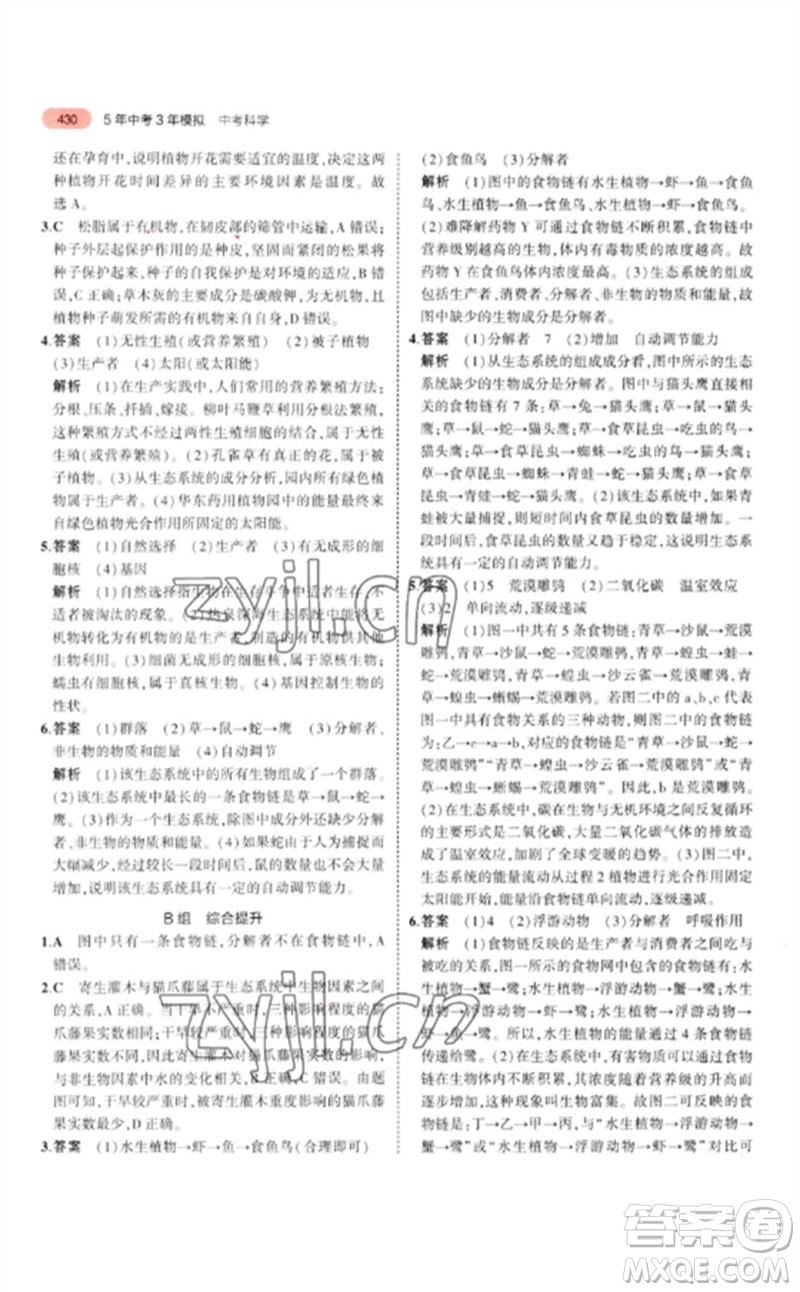 430 5年中考3年模拟 中考科学
还在孕育中,说明植物开花需要适宜的温度,决定这两
种植物开花时间差异的主要环境因素是温度。故
选A。
3.C 松脂属于有机物,在韧皮部的筛管中运输,A错误;
种子外层起保护作用的是种皮,坚固而紧闭的松果将
种子保护起来,种子的自我保护是对环境的适应,B错
误,C正确;草木灰的主要成分是碳酸钾,为无机盐,且
植物种子萌发所需的有机物来自自身,D错误。
4.答案 (1)无性生殖(或营养繁殖) (2)被子植物
(3)生产者 (4)太阳(或太阳能)
解析 (1)在生产实践中,人们常用的营养繁殖方法:
分根、压条、扦插、嫁接。柳叶马鞭草利用分根繁殖,
这种繁殖方式没有经过两性生殖细胞的结合,属于无
性生殖(或营养繁殖)。(2)孔雀草有真正的花,属于被
子植物。(3)从生态系统的成分分析,园内所有绿色植
物都属于生产者。(4)华东药用植物园中的能量最终来
自绿色植物光合作用所固定的太阳能。
5.答案 (1)自然选择 (2)生产者 (3)有无成形的细
胞核 (4)基因
解析 (1)自然选择指生物在生存斗争中适者生存、不
适者被淘汰的现象。(2)热泉深海生态系统中能将无
机物转变为有机物
生物。(3)细菌无成形的细胞核,属于原核生物;
蠕虫有成形的细胞核,属于真核生物。(4)基因控制生物的
性状。
6.答案 (1)群落 (2)草→鼠→蛇→鹰 (3)分解者、
非生物的物质和能量 (4)自动调节
解析 (1)该生态系统中的所有生物组成了一个群落。
(2)该生态系统中最长的一条食物链是草→鼠→蛇→
鹰。(3)作为一个生态系统,除图中成分外还有分解
者、非生物的物质和能量。(4)如果蛇由于人为捕捉而
大幅减少,经过一段时间后,鼠的数量并不会一直大幅
增加,说明该生态系统具有一定的自动调节能力。
B组 综合提升
1.A 图中只有一条食物链,分解者不在食物链中,A
错误。
2.C 寄生灌木与猫爪藤属于生态系统中生物因素之间
的关系,A正确。当干旱不严重时,三种影响程度的猫
爪藤果实数相同;干旱较严重时,三种影响程度的猫爪
藤果实数不同
中水的变化相关,B正确,C错误。由题
图可知,干旱较严重时,寄生灌木影响越大的猫爪藤果
实数最少,D正确。
3.答案 (1)水生植物→虾→鱼→食鱼鸟(合理即可)
(2)食鱼鸟 (3)分解者
解析 (1)图中的食物链有水生植物→虾→鱼→食鱼
鸟、水生植物→鱼→食鱼鸟、水生植物→虾→食鱼鸟。
(2)难降解药物Y可通过食物链不断积累,食物链中
营养级别越高的生物,体内有毒物质的浓度越高。故
该药物Y在食鱼鸟体内浓度最高。(3)生态系统的组成
包括生产者、消费者、分解者、非生物的物质和能量。
图中缺少的生物成分是分解者。
4.答案 (1)分解者 7 (2)增加 自动调节能力
解析 (1)从生态系统的组成成分看,图中所示的生态
系统缺少的生物成分是分解者。图中与猫头鹰直接相
关的食物链有7条:草→兔→猫头鹰;草→鼠→猫头
鹰;草→鼠→蛇→猫头鹰;草→食草昆虫→吃虫的鸟→
猫头鹰;草→食草昆虫→蜘蛛→吃虫的鸟→猫头鹰;
草→食草昆虫→蜘蛛→青蛙→蛇→猫头鹰;草→食草昆
虫→青蛙→蛇→猫头鹰。(2)该生态系统中,如果青
蛙被大量捕捉,则短时间内食草昆虫的数量增加。一
段时间内,食草昆虫的数量不会无限增加,说明生态系
统具有一定的自动调节能力。
5.答案 (1)5 荒漠雕鸮 (2)二氧化碳 温室效应
(3)2 单向流动,逐级递减
解析 (1)图一中共有5条食物链:青草→沙鼠→荒漠
雕鸮、青草→沙鼠→蛇→荒漠雕鸮、青草→蝗虫→蛙→
蛇→荒漠雕鸮、青草→蝗虫→沙云雀→荒漠雕鸮、青
草→蝗虫→蜥蜴→荒漠雕鸮。若图二中的a、b、c代表
具有食物关系的三种动物,则图二中存在的食物链
为:乙→c→a→b,对应的食物链是“青草→沙鼠→蛇→
荒漠雕鸮”“青草→蝗虫→沙云雀→荒漠雕鸮”“青草→
蝗虫→蜥蜴→荒漠雕鸮”。因此,b是荒漠雕鸮。
(2)在生态系统中,碳在生物与无机环境之间反复循环
的主要形式是二氧化碳,大量二氧化碳气体的排放形
成了温室效应,加剧了全球变暖的趋势。(3)图二中,
生态系统的能量流动从过程2植物进行光合作用固定
太阳能开始,能量沿食物链单向流动、逐级递减。
6.答案 (1)4 (2)浮游动物 (3)分解者 呼吸作用
解析 (1)食物链反映的是生产者与消费者之间吃与
被吃的关系,图一所示的食物网中包含的食物链有:水
生植物→蟹→鹭;水生植物→浮游动物→蟹→鹭;水生
植物→浮游动物→虾→鹭;水生植物→浮游动物→
鱼→鹭。所以,水生植物的能量可通过4条食物链
传递给鹭。(2)在生态系统中,有害物质可以通过食物
链在生物体内不断积累,其浓度随着营养级的升高而
逐步增加,这种现象叫生物富集。故图二可反映的食
物链是:丁→乙→甲→丙,与“水生植物→浮游动物→
蟹→鹭”“水生植物→浮游动物→虾→鹭”对比可
zyjl.cn
zyjl.cn
答案圈
MXQE.COM